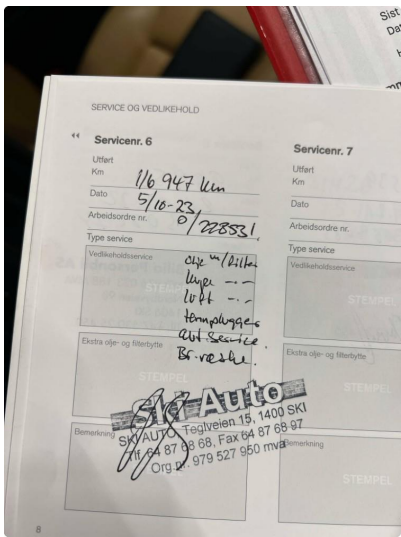 Sist
Da
SERVICE OG VEDLIKEHOLD
Servicenr. 6
Utført
Km
116 947 km
Dato
5/10-23
Arbeidsordre nr.
0/228531
Type service
Vedlikeholdsservice
olje m/filter
kupe -"-
luft -"-
tennplugger
aut.service.
Br.væske.
STEMPEL
Ekstra olje- og filterbytte
STEMPEL
Bemerkning
Ski Auto
SKI AUTO, Teglveien 15, 1400 SKI
Tlf. 64 87 68 68, Fax 64 87 68 97
Org.nr. 979 527 950 mva
Servicenr. 7
Utført
Km
Dato
Arbeidsordre nr.
Type service
Vedlikeholdsservice
STEMPEL
Ekstra olje- og filterbytte
STEMPEL
Bemerkning
STEMPEL
8